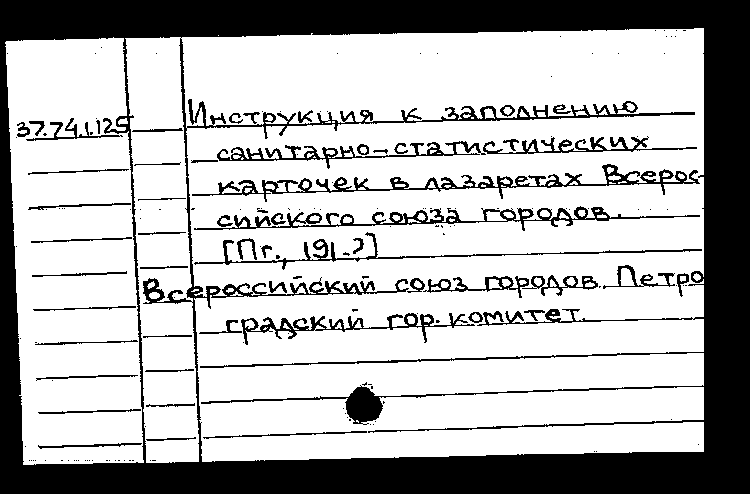 37.74.1.125
Инструкция к заполнению
санитарно-статистических
карточек в лазаретах Всерос-
сийского союза городов.
[Пг., 191.?]
Всероссийский союз городов. Петро
градский гор. комитет.